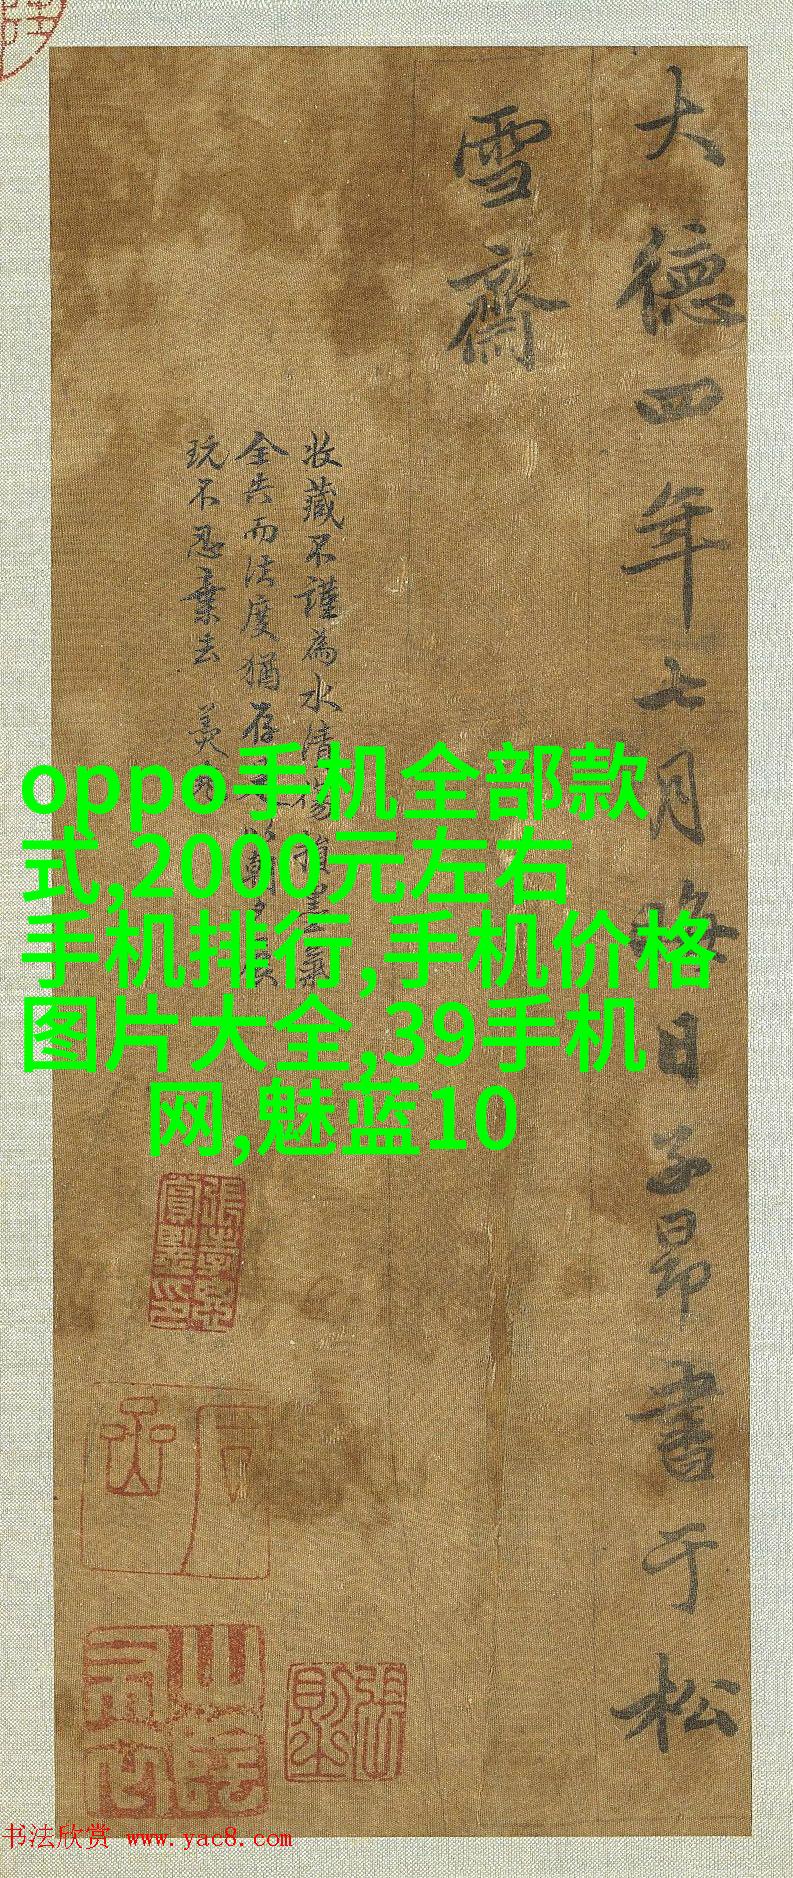 大德四年七月晦日子昂書于松
雪齋
收藏不謹為水漬傷損墨氣
全失而法度猶存
玩不忍棄去
oppo手机全部款
式,2000元左右
手机排行,手机价格
图片大全,39手机
网,魅蓝10
书法欣赏 www.yac8.com